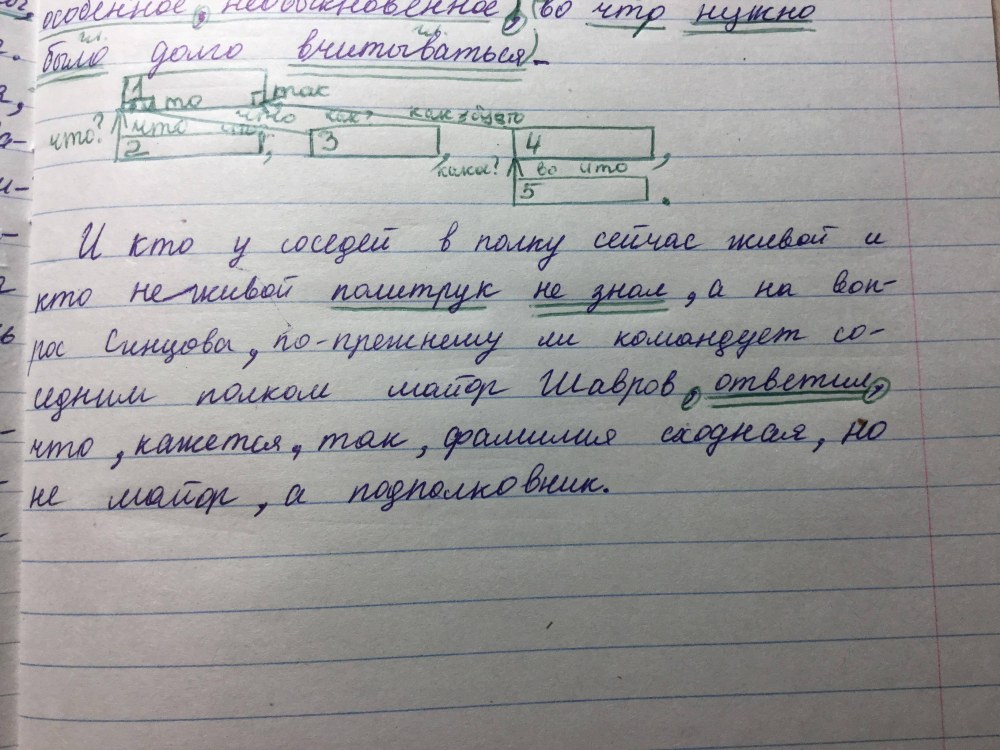 особенное, необыкновенное, (во что нужно
было долго вчитываться).
1
что так
что? что что как? как будто
2 , 3 , 4 ,
какое? во что
5 .
И кто у соседей в полку сейчас живой и
кто не живой политрук не знал, а на воп-
рос Синцова, по-прежнему ли командует со-
седним полком майор Шавров, ответил,
что, кажется, так, фамилия сходная, но
не майор, а подполковник.